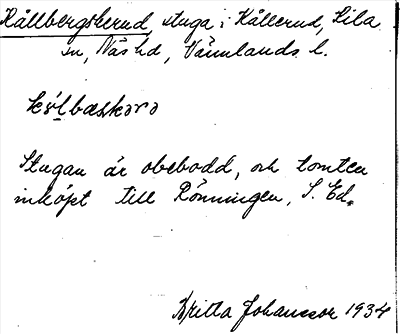 Kållbergskerud, stuga i Kållerud, Lila
sn, Näs hd, Värmlands l.
kó̀lbæskərə
Stugan är obebodd, och tomten
inköpt till Rönningen, S. Ed.
Britta Johansson 1934